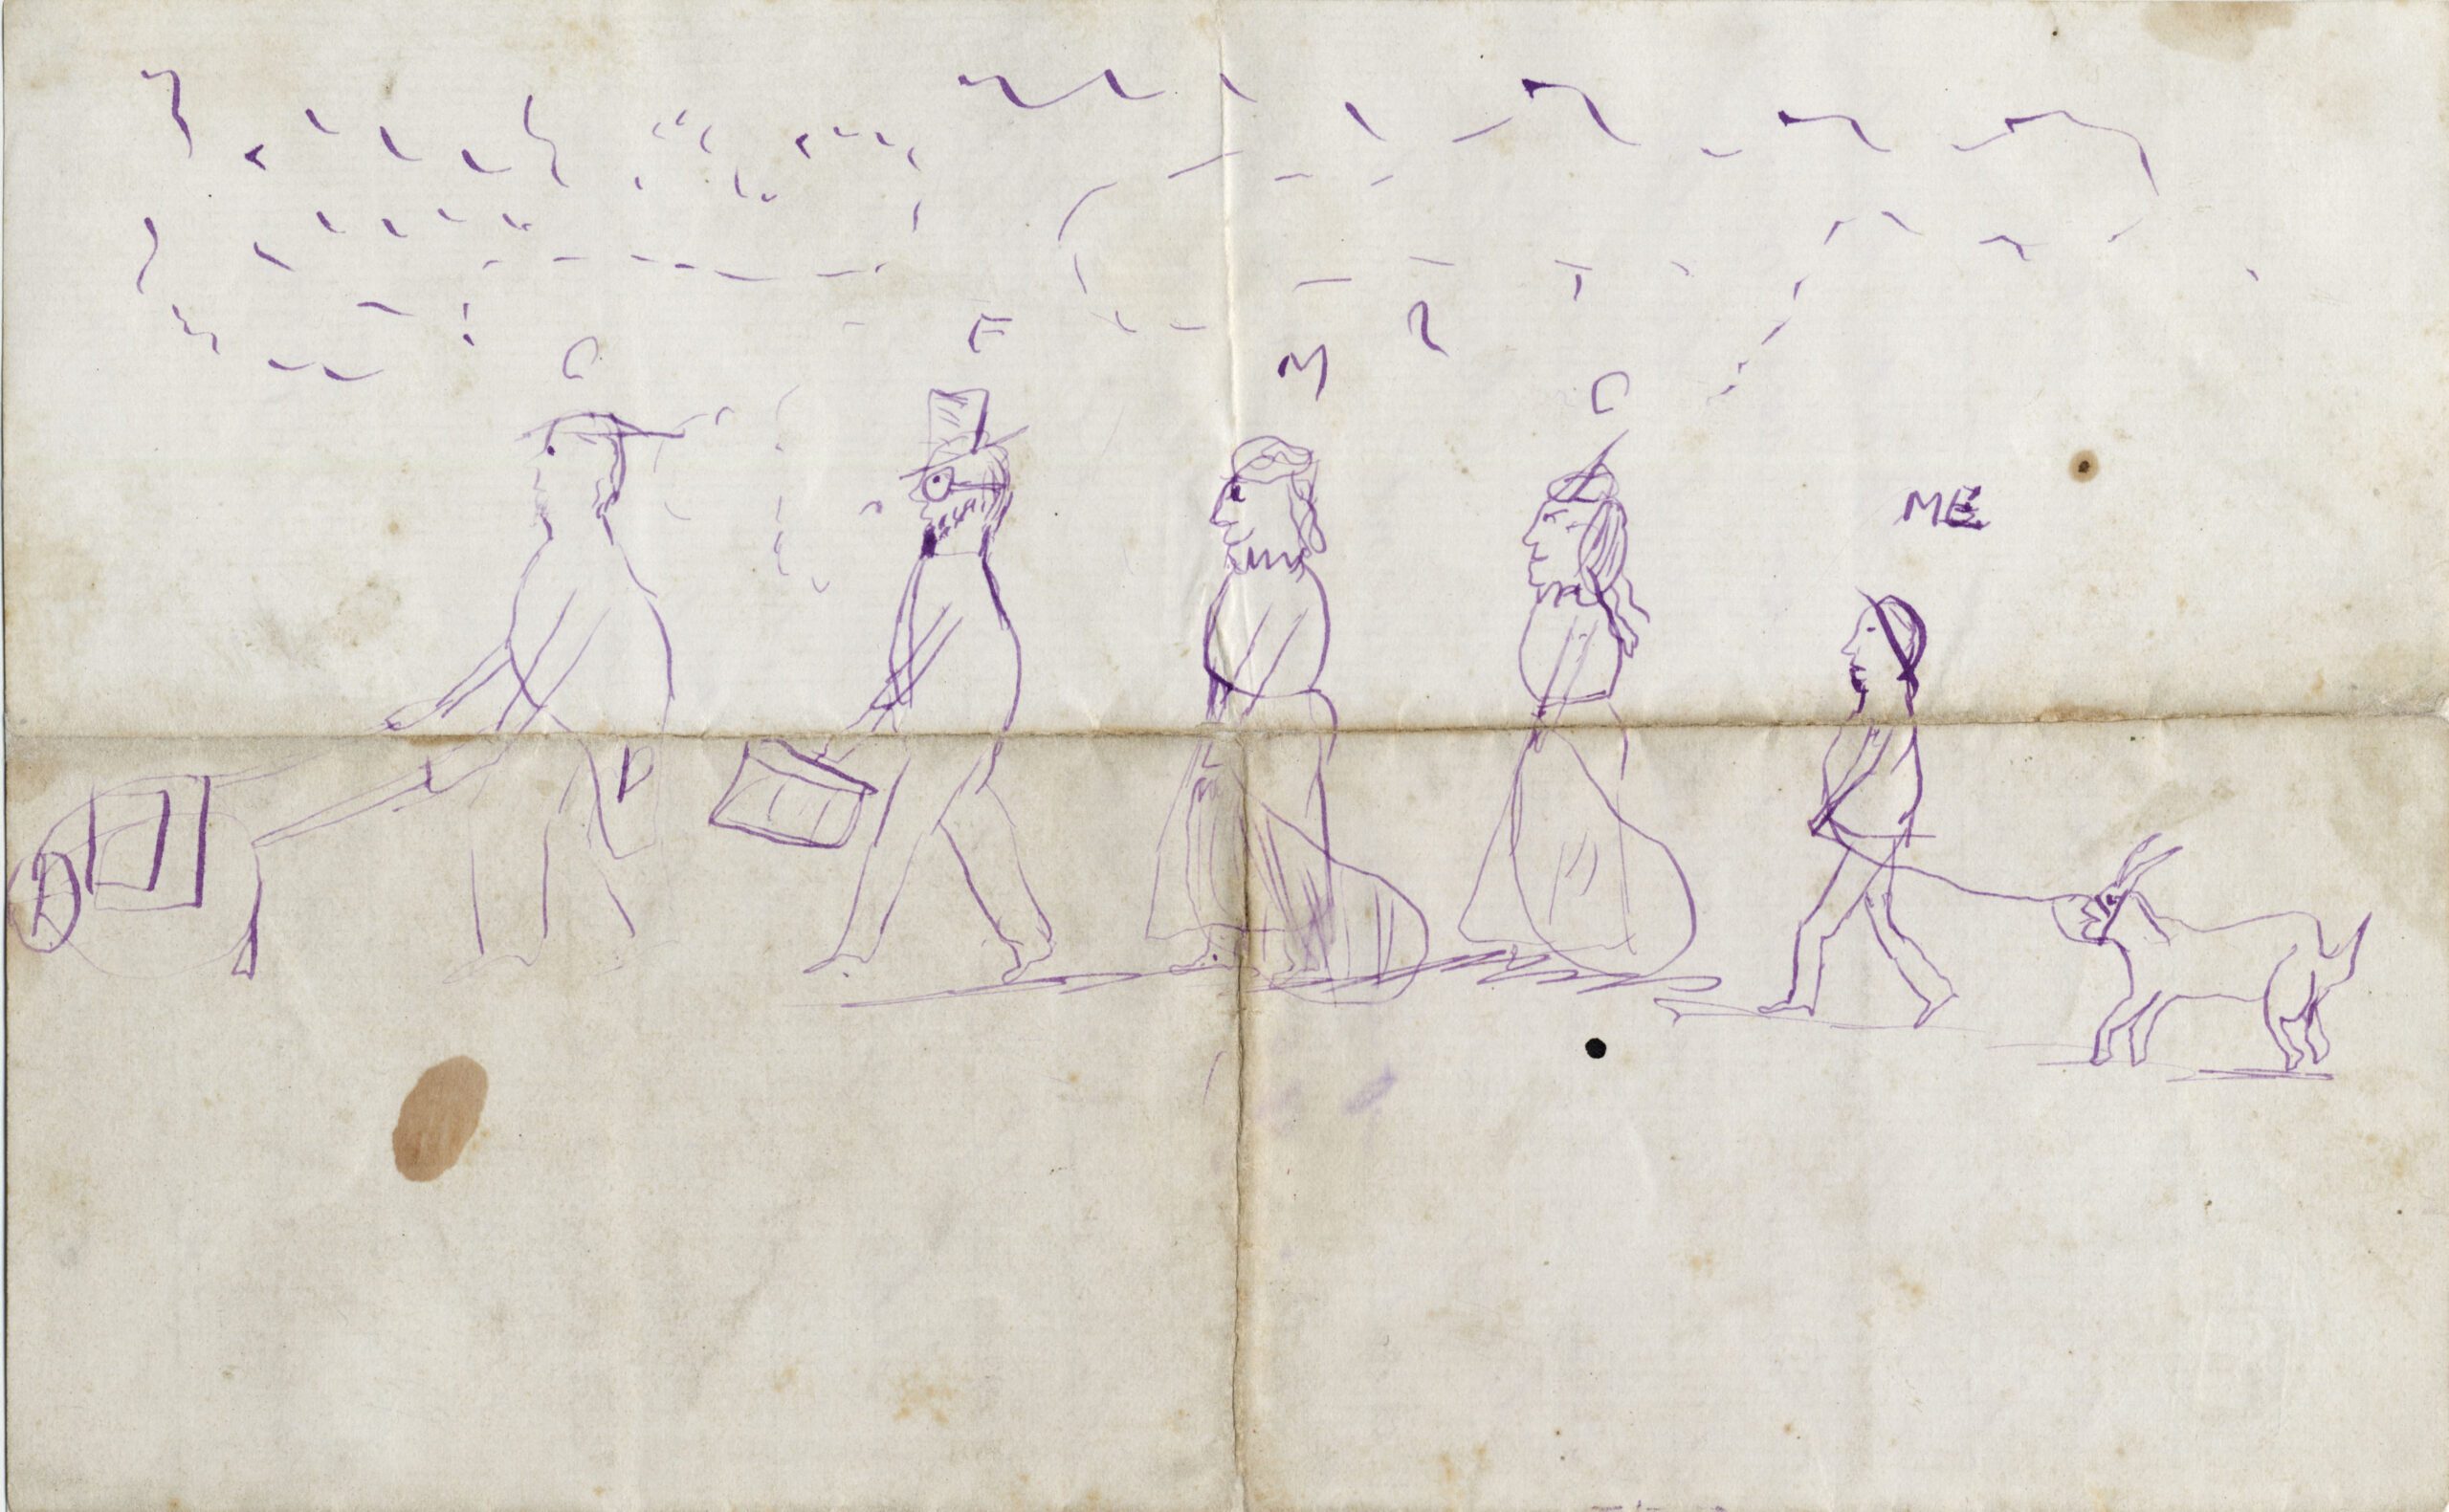 C F M C ME